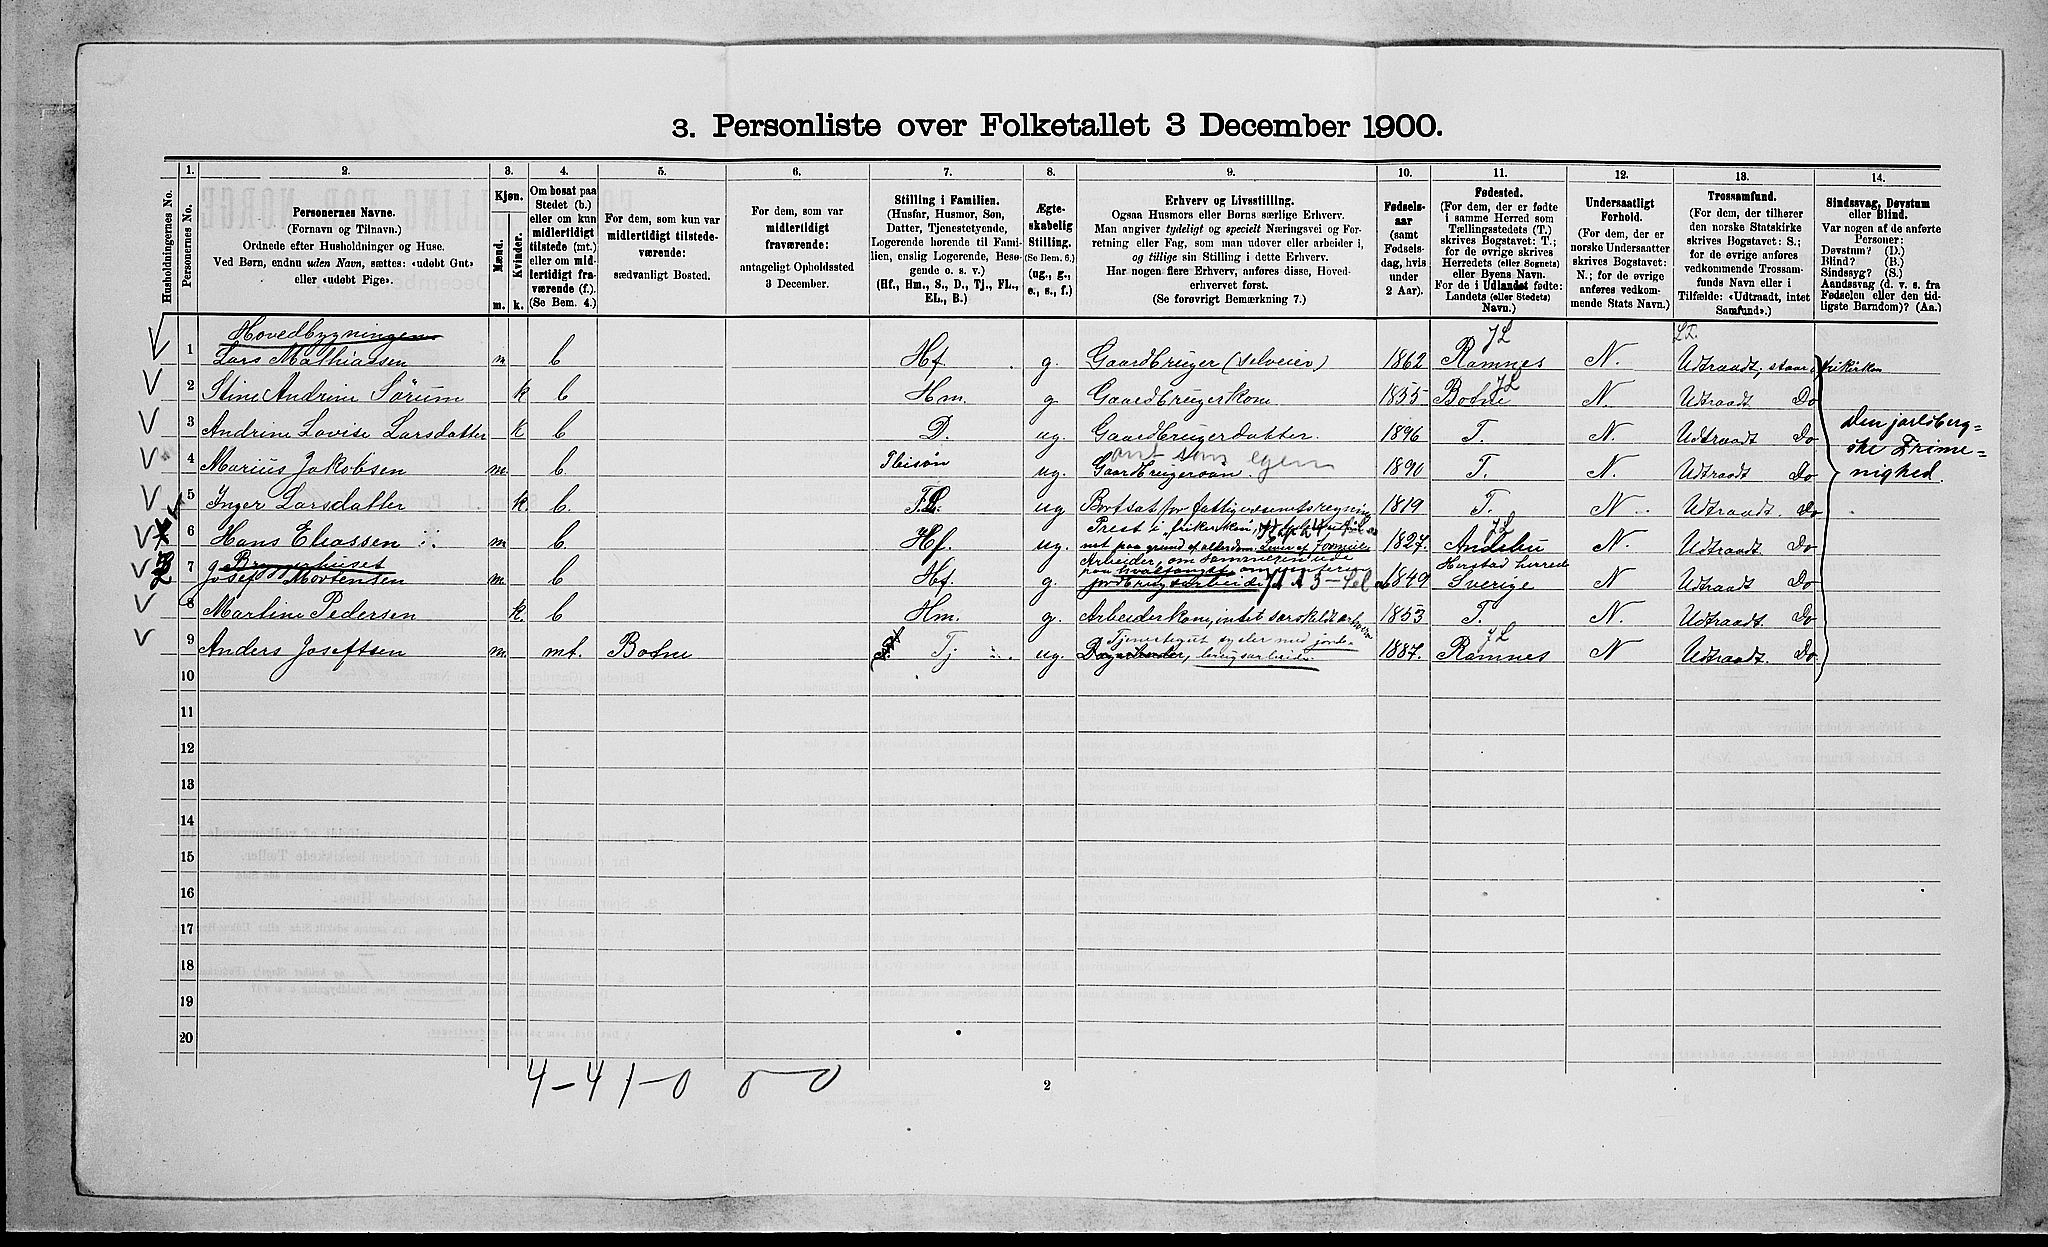 3. Personliste over Folketallet 3 December 1900.
1. 2. 3. 4. 5. 6. 7. 8. 9. 10. 11. 12. 13. 14.
Husholdningernes No.
Personernes No.
Personernes Navne.
(Fornavn og Tilnavn.)
Ordnede efter Husholdninger og Huse.
Ved Børn, endnu uden Navn, sættes: «udøbt Gut»
eller «udøbt Pige».
Kjøn.
Mænd.
Kvinder.
m. k.
Om bosat paa
Stedet (b.)
eller om kun
midlertidigt
tilstede (mt.)
eller om mid-
lertidigt fra-
værende (f.).
(Se Bem. 4.)
For dem, som kun var
midlertidigt tilstede-
værende:
sædvanligt Bosted.
For dem, som var
midlertidigt
fraværende:
antageligt Opholdssted
3 December.
Stilling i Familien.
(Husfar, Husmor, Søn,
Datter, Tjenestetyende,
Logerende hørende til Fami-
lien, enslig Logerende, Besø-
gende o. s. v.)
(Hf., Hm., S., D., Tj., FL.,
EL., B.)
Ægte-
skabelig
Stilling.
(Se Bem. 6.)
(ug., g.,
e., s., f.)
Erhverv og Livsstilling.
Ogsaa Husmors eller Børns særlige Erhverv.
Man angiver tydeligt og specielt Næringsvei og For-
retning eller Fag, som man udøver eller arbeider i,
og tillige sin Stilling i dette Erhverv.
Har nogen flere Erhverv, anføres disse, Hoved-
erhvervet først.
(Se forøvrigt Bemærkning 7.)
Fødsels-
aar
(samt
Fødsels-
dag, hvis
under
2 Aar).
Fødested.
(For dem, der er fødte
i samme Herred som
Tællingsstedets (T.)
skrives Bogstavet: T.;
for de øvrige skrives
Herredets (eller Sognets)
eller Byens Navn.
For de i Udlandet fødte:
Landets (eller Stedets)
Navn.)
Undersaatligt
Forhold.
(For dem, der er
norske Undersaatter
skrives Bogstavet:
N.; for de øvrige
anføres vedkom-
mende Stats Navn.)
Trossamfund.
(For dem, der tilhører
den norske Statskirke
skrives Bogstavet: S.;
for de øvrige anføres
vedkommende Trossam-
funds Navn eller i
Tilfælde: «Udtraadt, intet
Samfund».)
Sindssvag, Døvstum
eller Blind.
Var nogen af de anførte
Personer:
Døvstum? (D.)
Blind? (B.)
Sindssyg? (S.)
Aandssvag (d. v. s. fra
Fødselen eller den tid-
ligste Barndom)? (Aa.)
Hovedbygningen
1 Lars Mathiassen m b Hf. g. Gaardbruger (selveier) 1862 Ramnes N. Udtraadt, staar i frikirken
2 Stine Andrine Sørum k b Hm. g. Gaardbrugerkone 1855 Botne N. Udtraadt Do
3 Andrine Lovise Larsdatter k b D. ug. Gaardbrugerdatter. 1896 T. N. Udtraadt Do
4 Marius Jakobsen m. b. Pleisøn ug. Gaardbrugersøn. 1890 T. N. Udtraadt Do
som egen
5 Inger Larsdatter k b. F.L. ug Bortsat for fattigvæsenets regning 1819 T. N Udtraadt. Do
6 Hans Eliassen m b. Hf. ug. Prest i frikirken, 1827. Andebu N. Udtraadt Do
mt paa grund af alderdom. Lever af Formue
Bryggerhuset
7 Josef Mortensen m. b Hf. g. Arbeider, om sommeren ude 1849 Herstad herred Sverige N Udtraadt Do
paa hvalfangst om vinteren
jordbrugsarbeide
8 Martine Pedersen k. b Hm. g. Arbeiderkone, intet særskildt erhverv 1853 T. N. Udtraadt. Do
9 Anders Joseftsen m. mt. Botne Tj ug. Tjenestegut sysler med jord- 1887. Ramnes N Udtraadt. Do
brugsarbeide
Den jarlsberg-
ske Frime-
nighed.
10
11
12
13
14
15
16
17
18
19
20
4-4 1-0 0-0
2